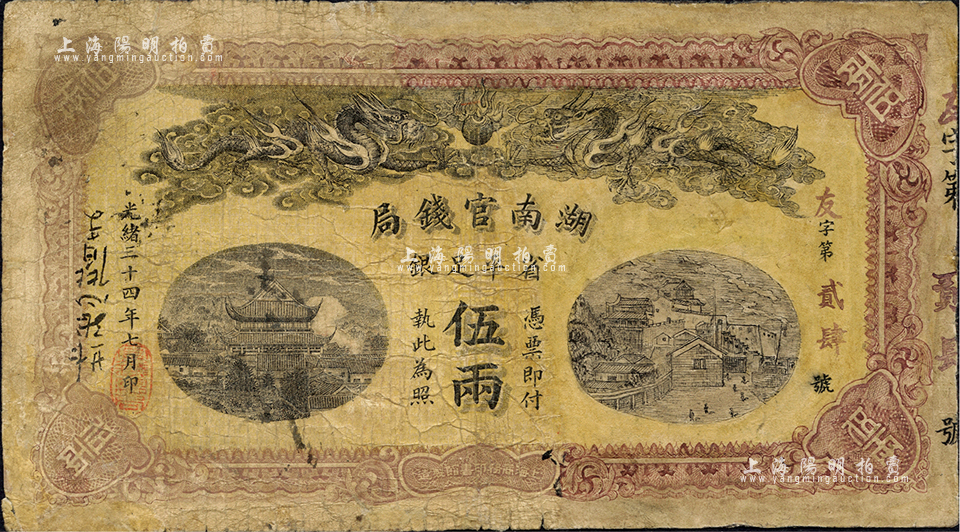 上海陽明拍賣
www.yangmingauction.com
上海陽明拍賣
www.yangmingauction.com
上海陽明拍賣
www.yangmingauction.com
湖南官錢局
省平
銀
伍兩
憑票即付
執此為照
友字第貳肆號
光緒三十四年七月印
伍兩
伍兩
伍兩
伍兩
號